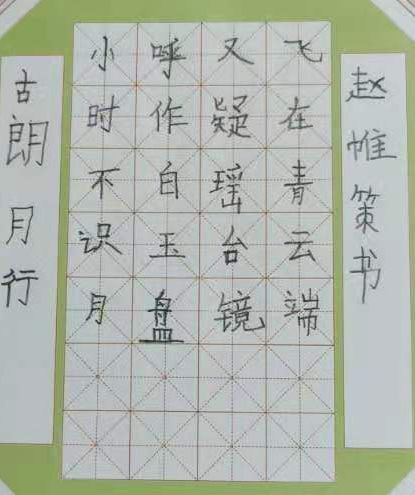 古朗月行
小时不识月
呼作白玉盘
又疑瑶台镜
飞在青云端
赵帷策书